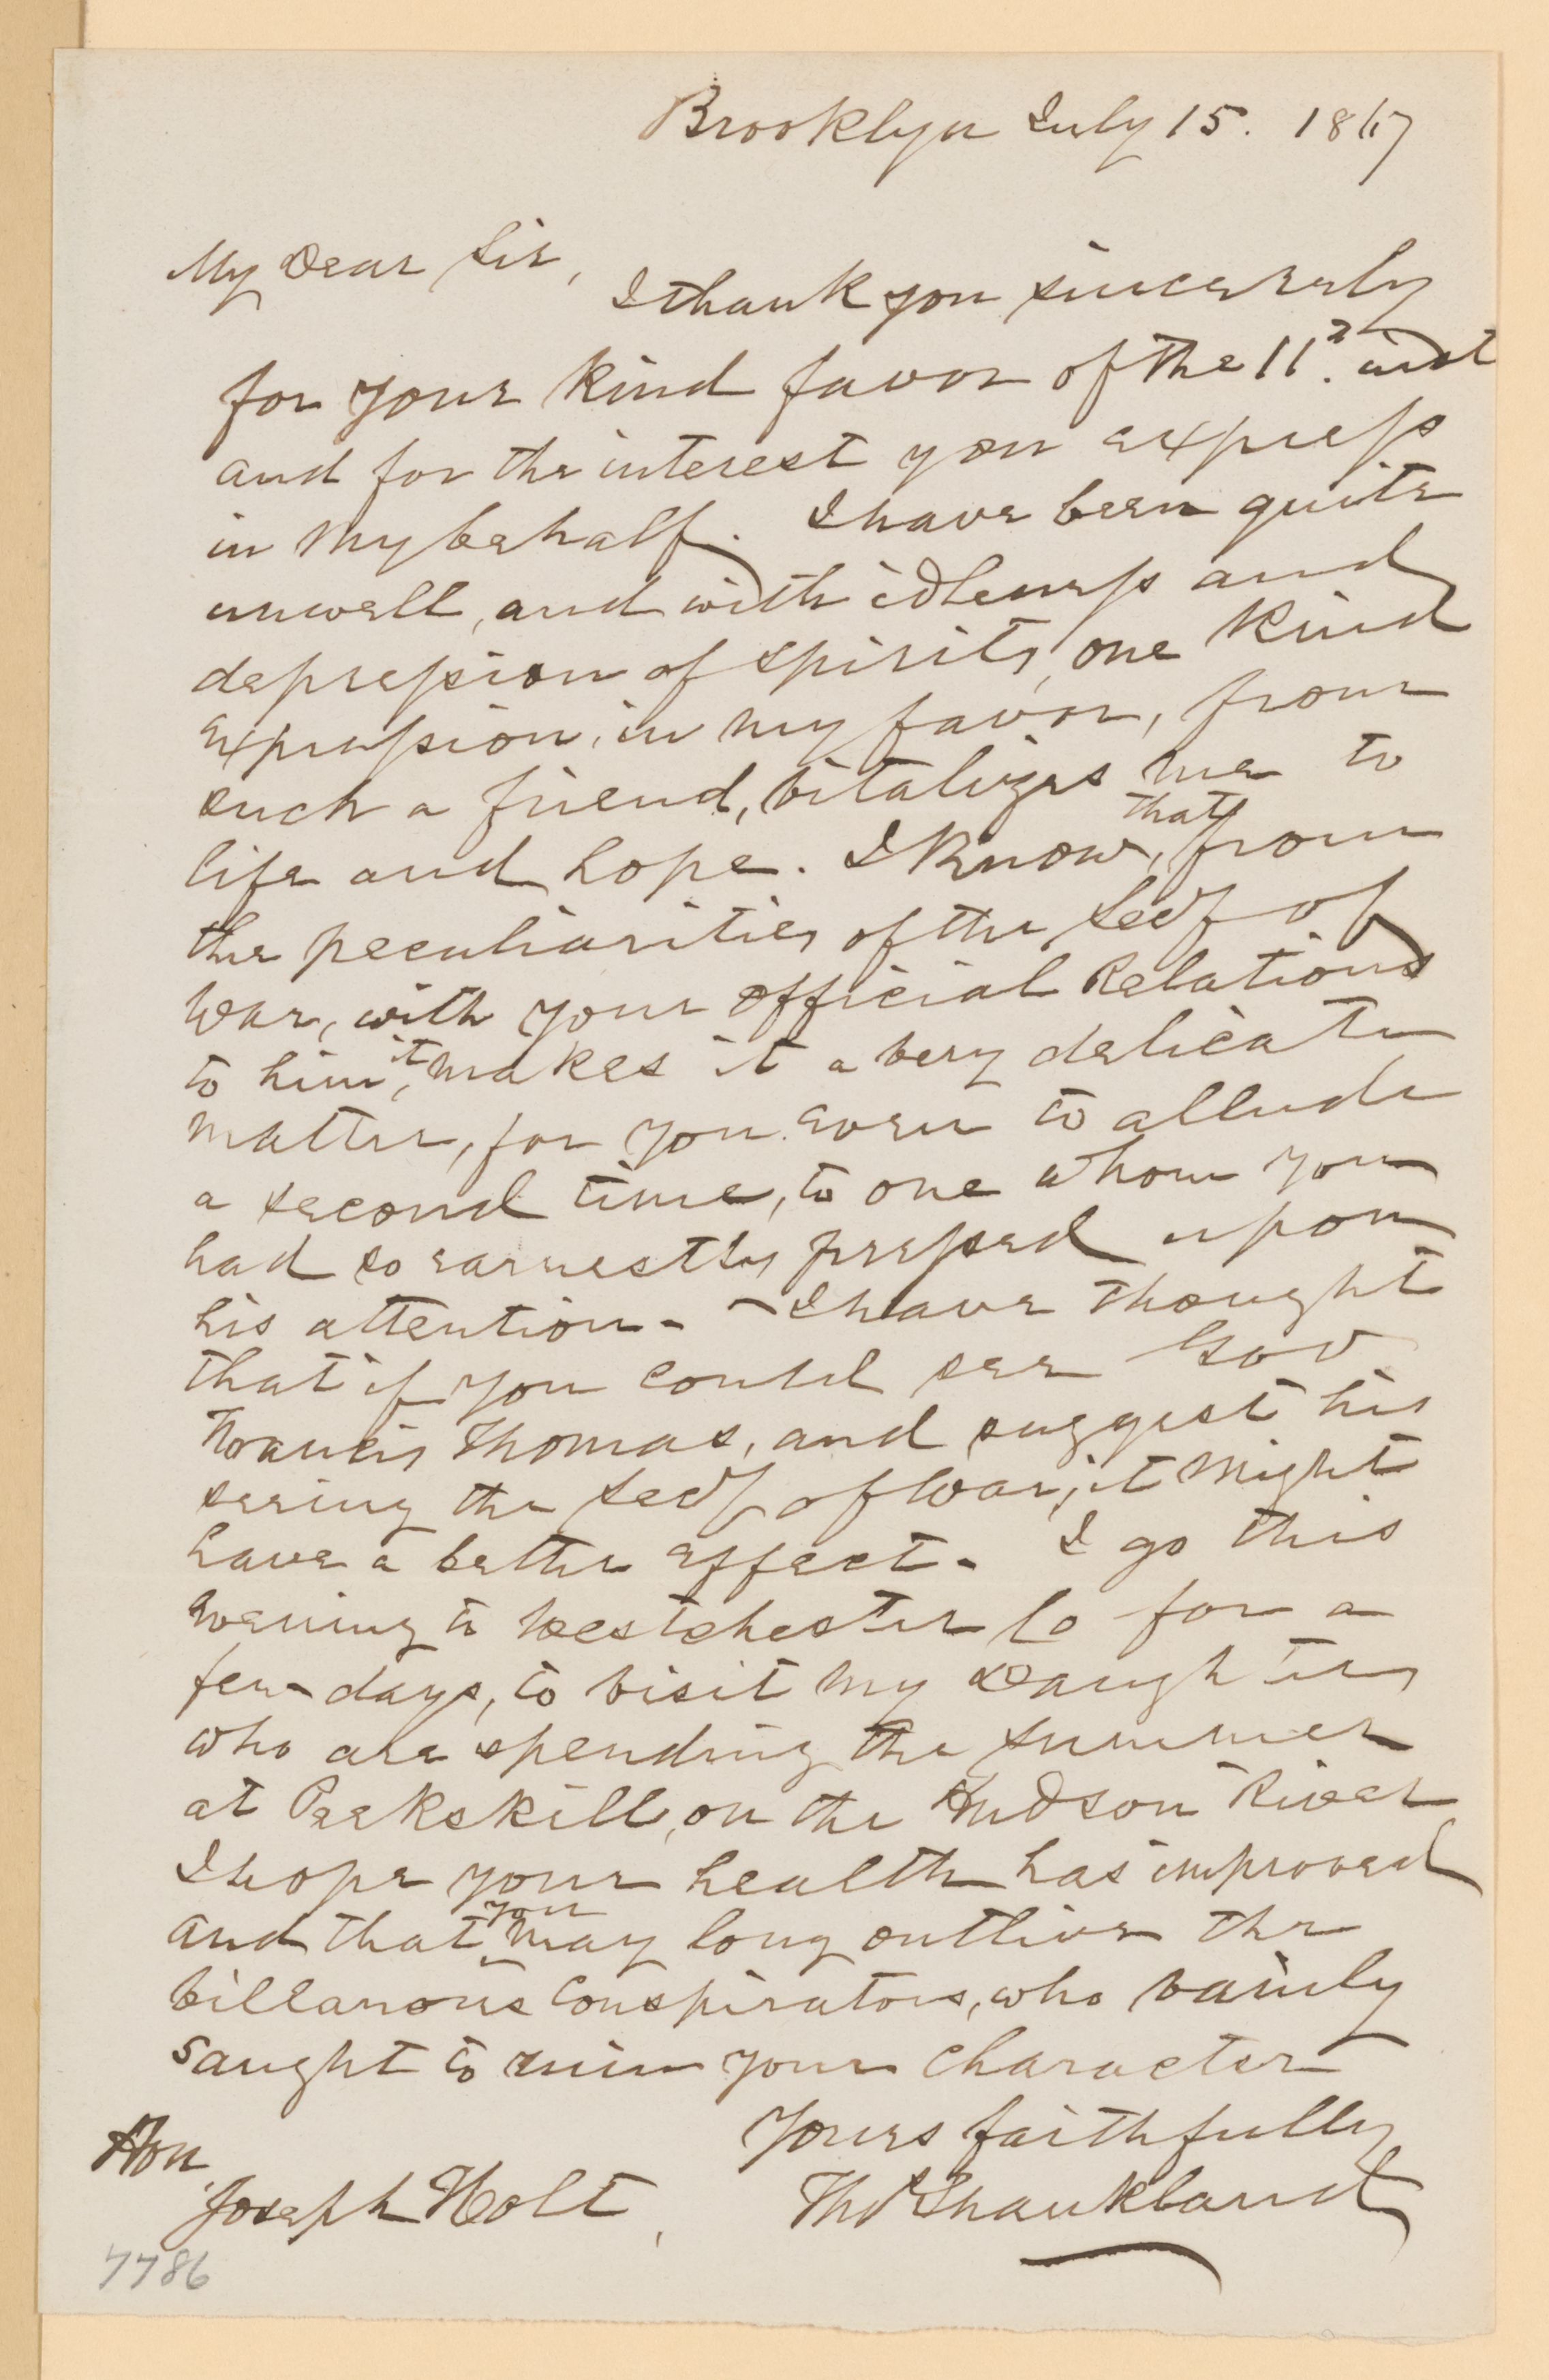 Brooklyn July 15. 1867
My Dear Sir,
I thank you sincerely
for your kind favor of the 11th inst
and for the interest you express
in my behalf. I have been quite
unwell, and with idleness and
depression of spirits, one kind
expression, in my favor, from
such a friend, vitalizes me to
life and hope. I know, that from
the peculiarities of the Secy of
War, with your official Relations
to him, it makes it a very delicate
matter, for you even to allude
a second time, to one whom you
had so earnestly pressed upon
his attention - I have thought
that if you could see Gov
Francis Thomas, and suggest his
seeing the Secy of War, it might
have a better effect - I go this
evening to Westchester Co for a
few days, to visit my Daughters
who are spending the summer
at Peekskill, on the Hudson River
I hope your health has improved
and that you may long outlive the
villanous Conspirators, who vainly
saught to ruin your character
Yours faithfully
Thos Shankland
Hon
Joseph Holt,
7786